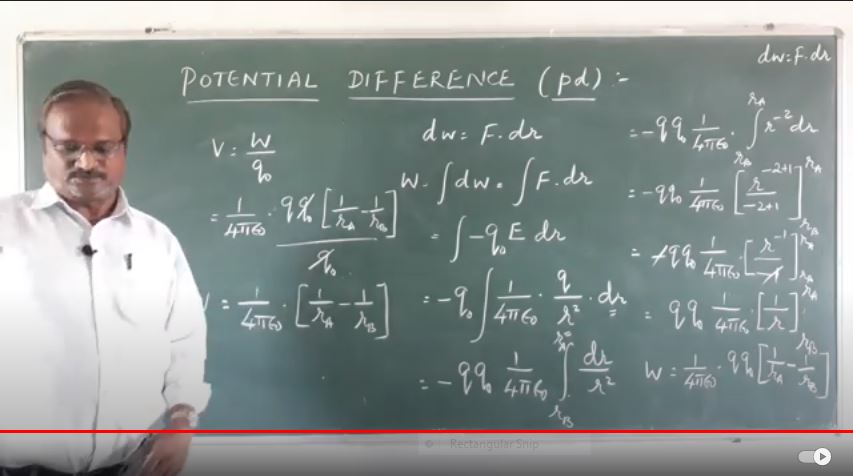 dw=F.dr
POTENTIAL DIFFERENCE (pd) :-
V = W/q₀
= 1/4π∈₀ · qq₀ [1/r_A - 1/r_B] / q₀
= 1/4π∈₀ · [1/r_A - 1/r_B]
dw = F.dr
W = ∫dw = ∫F.dr
= ∫-q₀E dr
= -q₀ ∫ 1/4π∈₀ · q/r² · dr
= -qq₀ 1/4π∈₀ ∫_{r_B}^{r_A} dr/r²
= -qq₀ 1/4π∈₀ · ∫_{r_B}^{r_A} r⁻² dr
= -qq₀ 1/4π∈₀ [r^{-2+1}/-2+1]_{r_B}^{r_A}
= -qq₀ 1/4π∈₀ · [r⁻¹/-1]_{r_B}^{r_A}
= qq₀ 1/4π∈₀ · [1/r]_{r_B}^{r_A}
W = 1/4π∈₀ · qq₀ [1/r_A - 1/r_B]
Rectangular Snip